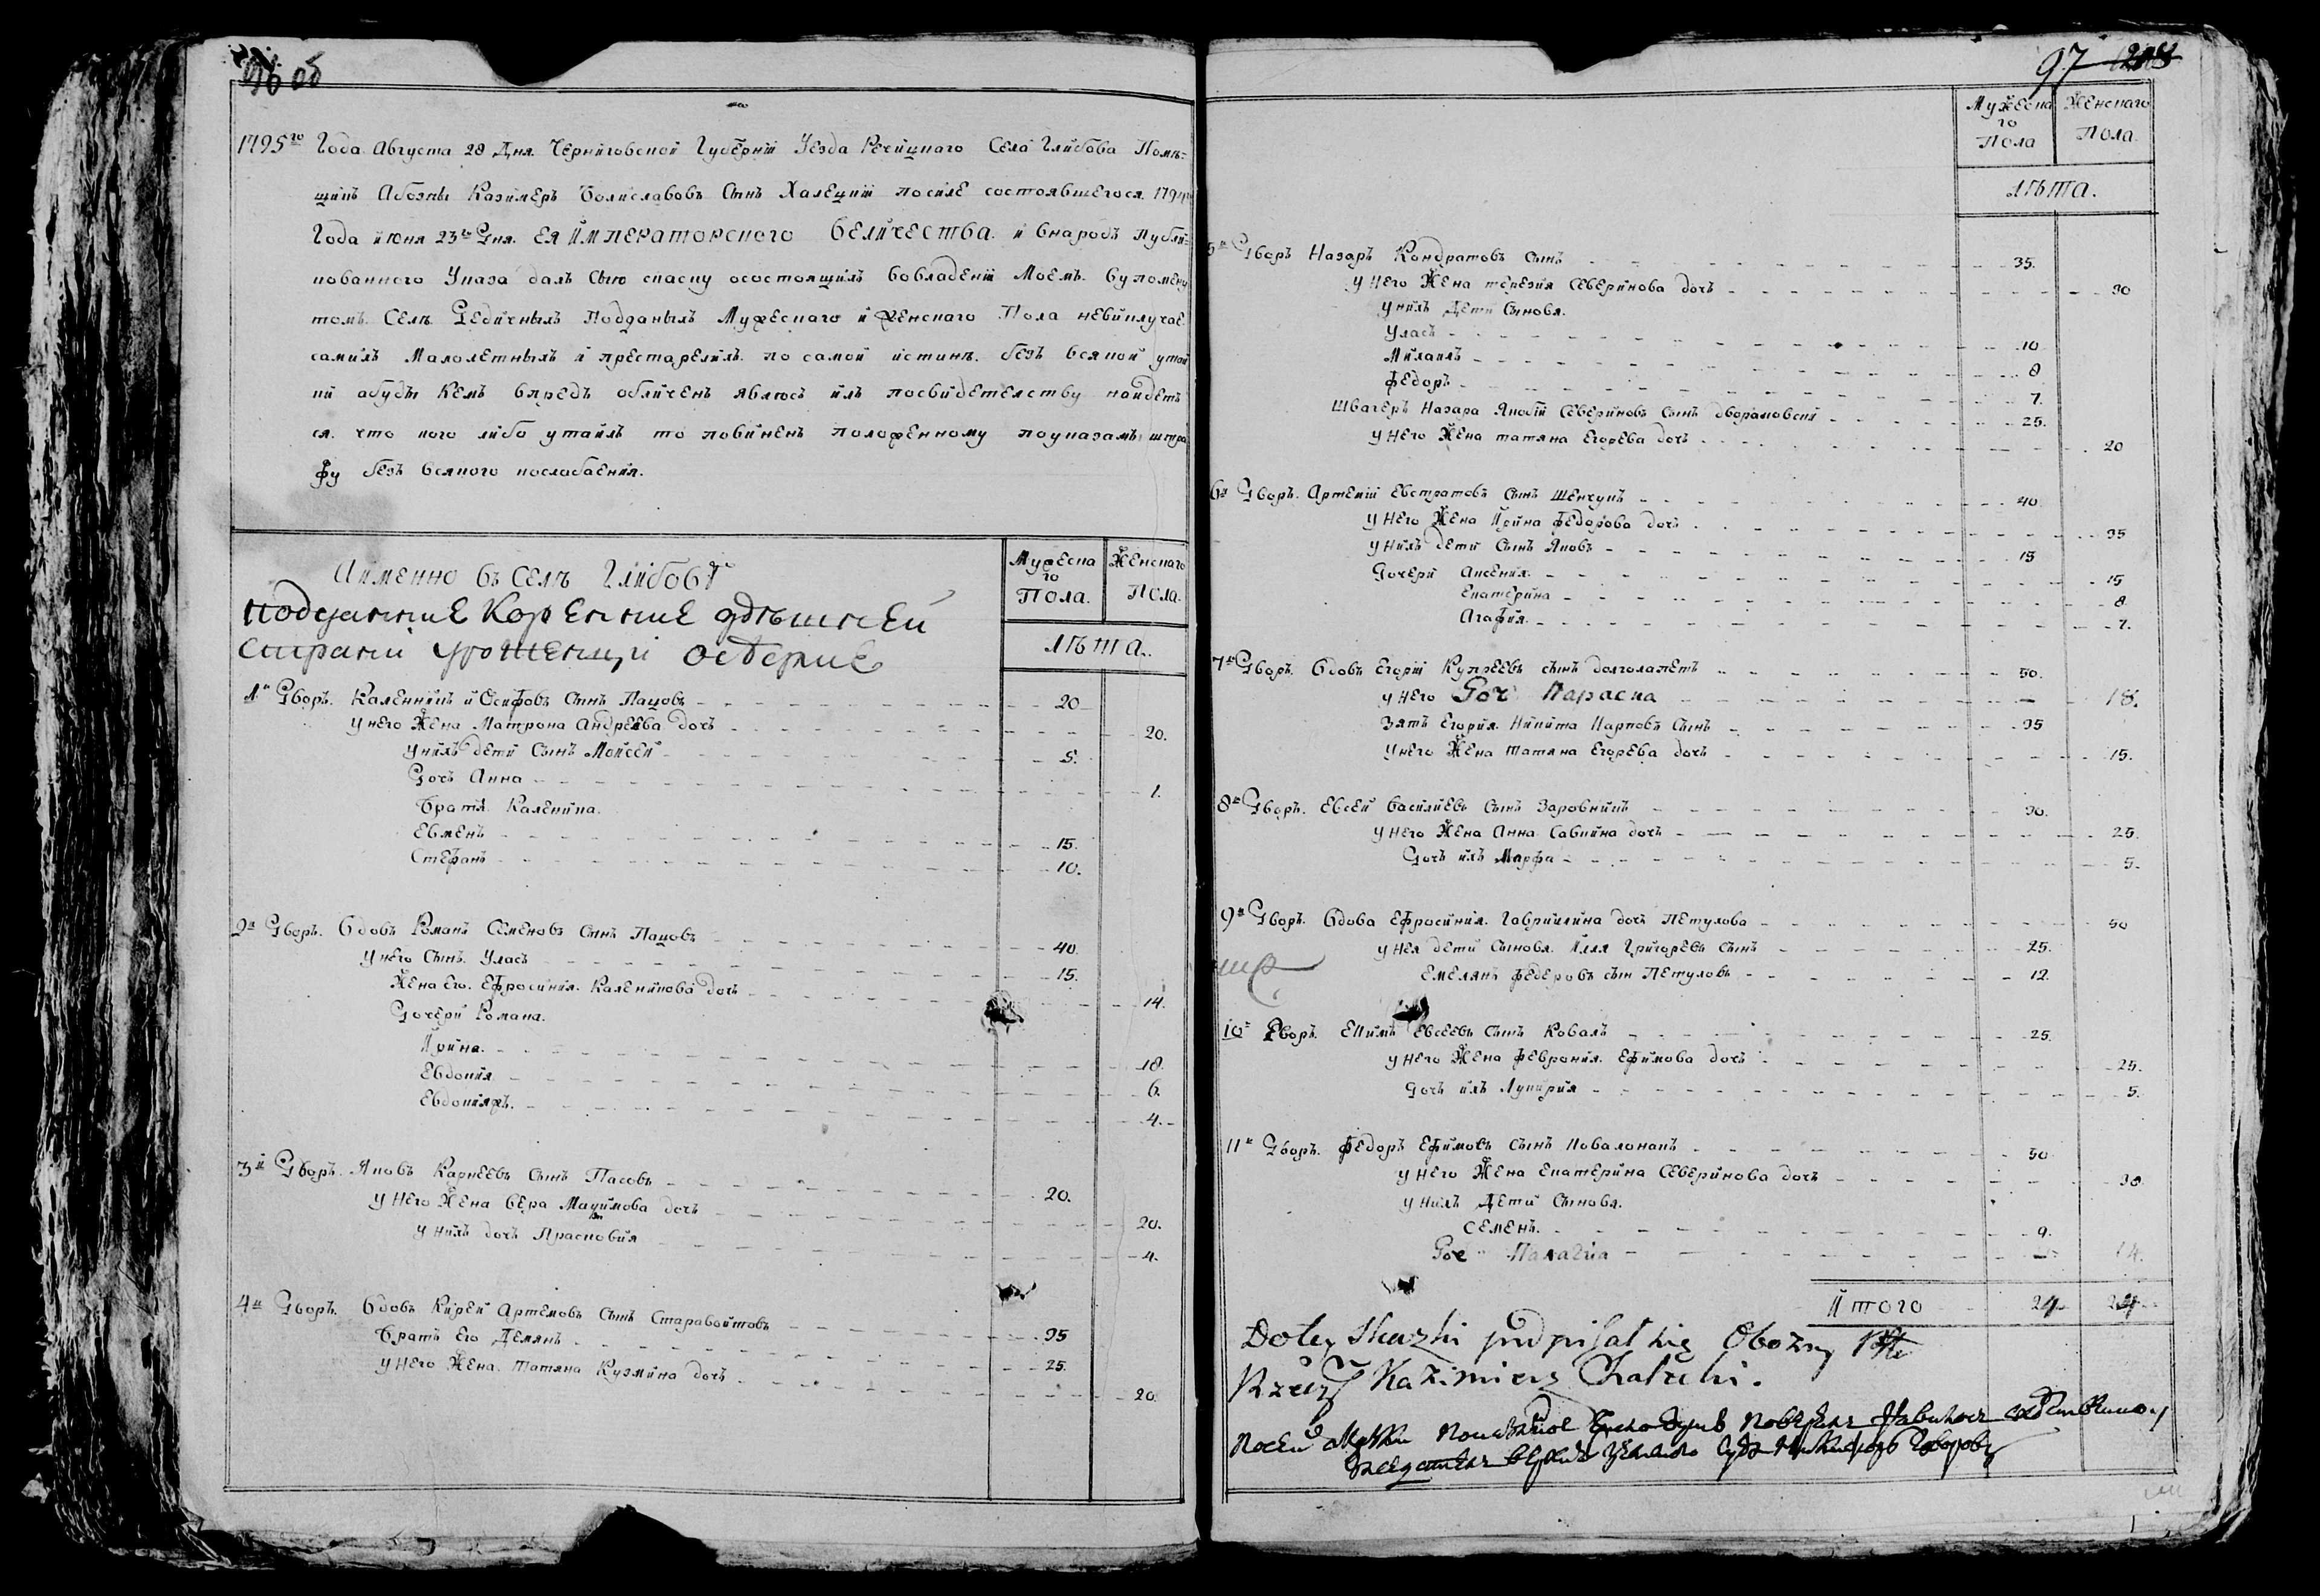 96 об
1795го Года Августа 28 Дня. Черниговской Губернии Уезда Речицкаго Села Глибова Помѣ=
щикъ Абозны Казимеръ Болиславовъ Снъ Халецкий посиле состоявшегося 1794го
Года июня 23го Дня. ЕЯ ИМПЕРАТОРСКОГО ВЕЛИЧЕСТВА. и внародъ публи=
кованного Указа далъ сию скаску осостоящихъ вовладении Моемъ. вупомену
томъ Селѣ Дедичныхъ Подданыхъ Мужескаго и Женскаго Пола невиключае
самихъ Малолетныхъ и престарелихъ. по самой истинѣ. безъ всякой утай
ки абуде Кемъ впредъ обличенъ явлюсъ илъ посвидетелству найдетъ
ся. что кого либо утаилъ то повиненъ положенному поуказамъ штра
фу безъ всякого послабления.
Мужеска
го
Пола.
Женскаго
Пола.
Лѣта.
Аименно въ Селѣ Глибовѣ
подданние Коренние здѣшней
страни уроженци оседлие
1й Дворъ. Каленникъ иОсифовъ Снъ Пацовъ 20
унего Жена Матрона Андреева дочъ 20.
унихъ дети Сынъ Моисей 5.
Дочъ Анна 1.
Братя Каленика.
Евменъ 15.
Стефанъ 10.
2й Дворъ. Вдовъ Романъ Семеновъ Снъ Пацовъ 40.
унего Сынъ Уласъ 15.
Жена Его. Ефросиния. Каленикова дочъ 14.
Дочери Романа.
Ирина. 18.
Евдокия 6.
Евдокияжъ. 4.
3й Дворъ. Яковъ Карнеевъ Снъ Пасовъ 20.
у Него Жена Вера Мацимова дочъ 20.
у нихъ дочъ Прасковия 4.
4й Дворъ. Вдовъ Кирей Артемовъ Снъ Старавойтовъ 35
Братъ Его Демянъ 25.
у Него Жена. Татяна Кузмина дочъ 20
97
Мужеска
го
Пола
Женскаго
Пола.
Лѣта.
5й Дворъ Назаръ Кондратовъ сынъ 35.
у Него Жена терезия Северинова дочъ 30
унихъ Дети Сыновя.
Уласъ 10
Михаилъ 8
Федоръ 7.
Швагеръ Назара Якобъ Севериновъ Сынъ дворановский 25.
у Него Жена татяна Егорева дочъ 20
6й Дворъ. Артемий Евстратовъ Сынъ Шевчукъ 40
у Него Жена Ирина Федорова дочъ 35
у нихъ дети Сынъ Яковъ 15
Дочери Аксения. 15
Екатерина 8
Агафия. 7.
7й Дворъ. Вдовъ Егорий Купреевъ сынъ долголапетъ 50.
у Него Доч Параска 18.
Зятъ Егория. Никита Карповъ Сынъ 35
у Него Жена татяна Егорева дочъ 15.
8й Дворъ. Евсей Василиевъ Сынъ Заровникъ 30.
у Него Жена Анна Савкина дочъ 25.
Дочъ ихъ Марфа 5.
9й Дворъ. Вдова Ефросиния. Гавриилина дочъ Петухова 50
у Нея дети Сыновя. Илля Григоревъ Сынъ 25.
Емелянъ Федеровъ сын Петуховъ 12.
10й Дворъ. Екимъ Евсеевъ Сынъ Ковалъ 25.
у Него Жена Феврония. Ефимова дочъ 25.
Дочъ ихъ Лукирия 5.
11й Дворъ. Федоръ Ефимовъ Сынъ коваловапъ 50
у Него Жена Екатерина Северинова дочъ 30.
у Нихъ Дети Сыновя.
Семенъ. 9.
Доч Палагиа 14.
Итого 24 24
Do tey Skazki podpisał się Obozny Ptu
Rzecz: Kazimierz Chalecki.